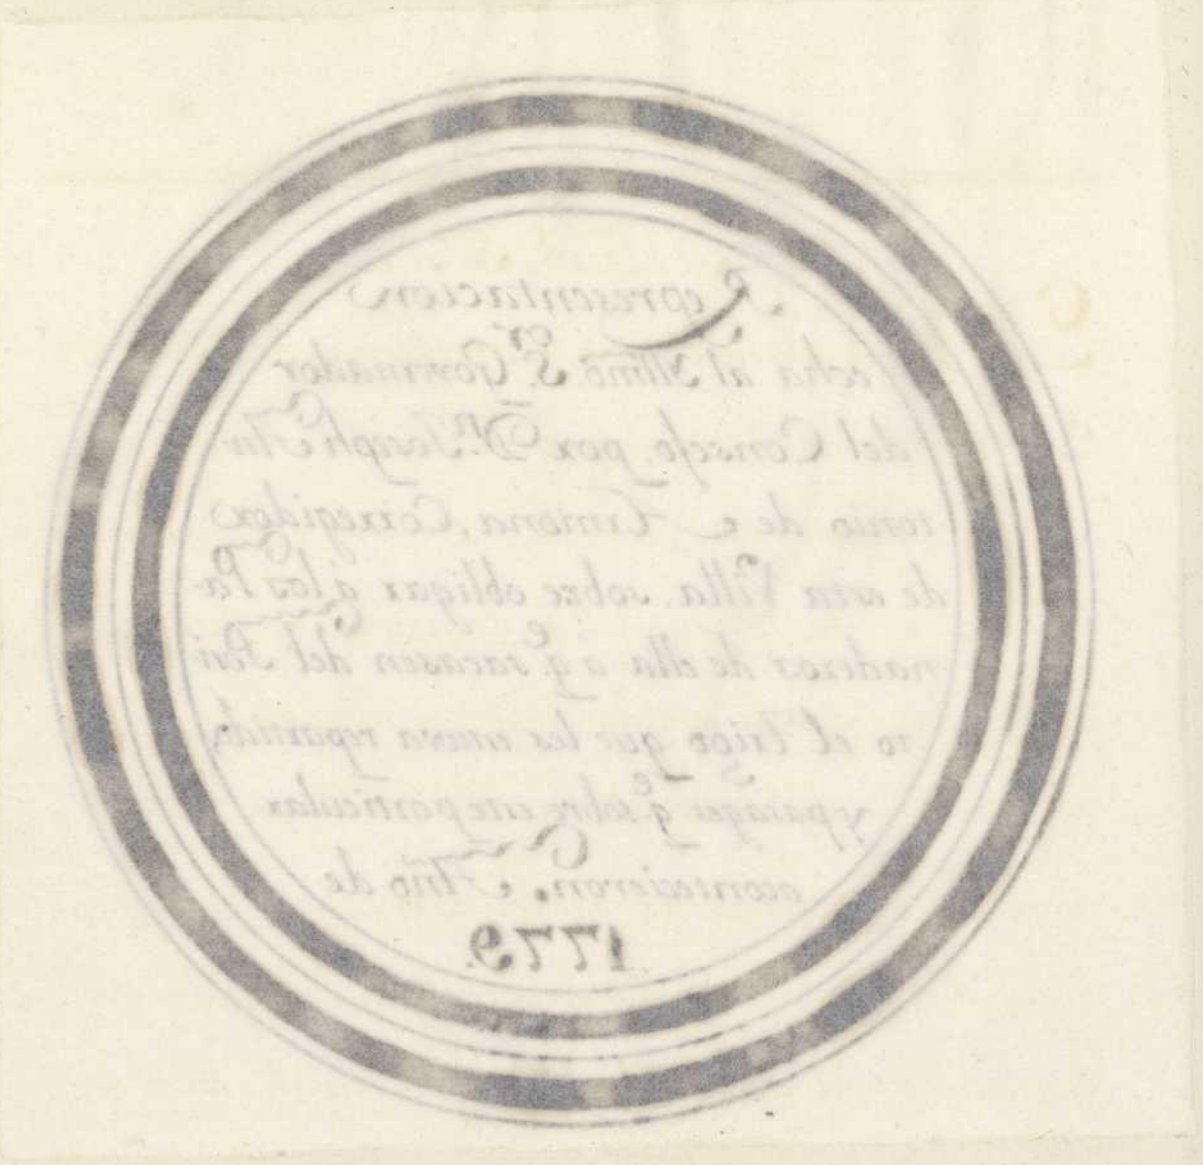 Representacion
echa al Illmo. Sr. Governador
del Consejo, por Dn. Joseph An
tonio de Armona, Corregidor
de esta Villa, sobre obligar a los Pa
naderos de ella a qe. sacasen del Posi
to el trigo que les estava repartido,
y parages qe. sobre este particular
acontecieron. Año de
1779.